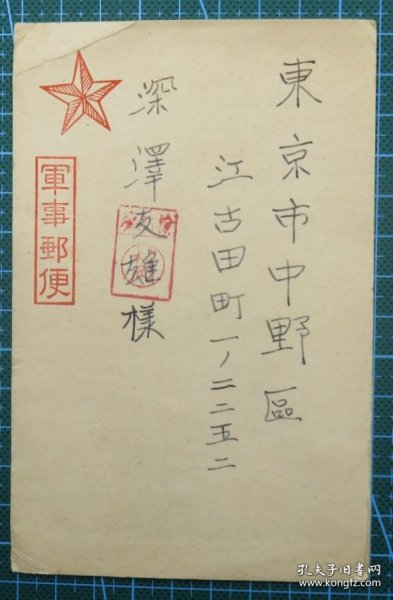 東京市中野區
江古田町一ノ二二五二
深澤友雄様
軍事郵便
孔夫子旧书网
www.kongfz.com